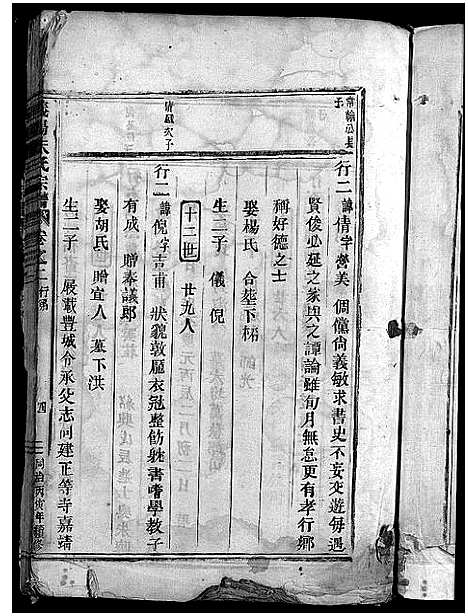 行二諱倩字譽美 倜儻尚義敏求書史不妄交遊每遇
賢俊必延之家與之譚論雖旬月無怠更有孝行鄉
稱好德之士
娶楊氏 合塟下梯
生二子 儀 倪
十二世 廿九人
行二諱倪字吉甫 狀貌敦龐衣冠整飭躭書嗜學教子
有成 贈奉議郎
娶胡氏 贈宜人 墓下洪
生二子 晟載豐城令承父志同建正等寺嘉靖
朱氏宗譜 卷之二 行第 四 同治丙寅年續修